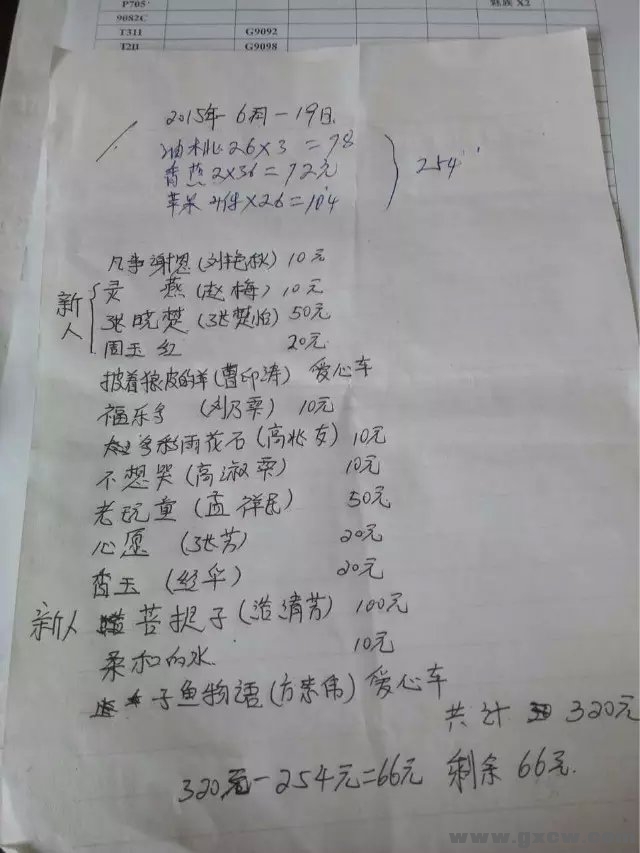 P705
魅族 X2
9082C
T311 G9092
T211 G9098
2015年-6月-19日
油桃 26×3 = 78
香蕉 2×36 = 72元
苹果 4件×26 = 104
254
凡事谢恩 (刘艳秋) 10元
新人
燕 (赵梅) 10元
张晓楚 (张楚怡) 50元
周玉红 20元
披着狼皮的羊 (曹印涛) 爱心车
福乐多 (刘乃荣) 10元
多彩雨花石 (高兆友) 10元
不想哭 (高淑荣) 10元
老玩童 (孟祥民) 50元
心愿 (张芳) 20元
香玉 20元
新人 菩提子 (浩清芳) 100元
柔和的水 10元
子鱼物语 (方崇伟) 爱心车
共计 320元
320元-254元=66元 剩余 66元.